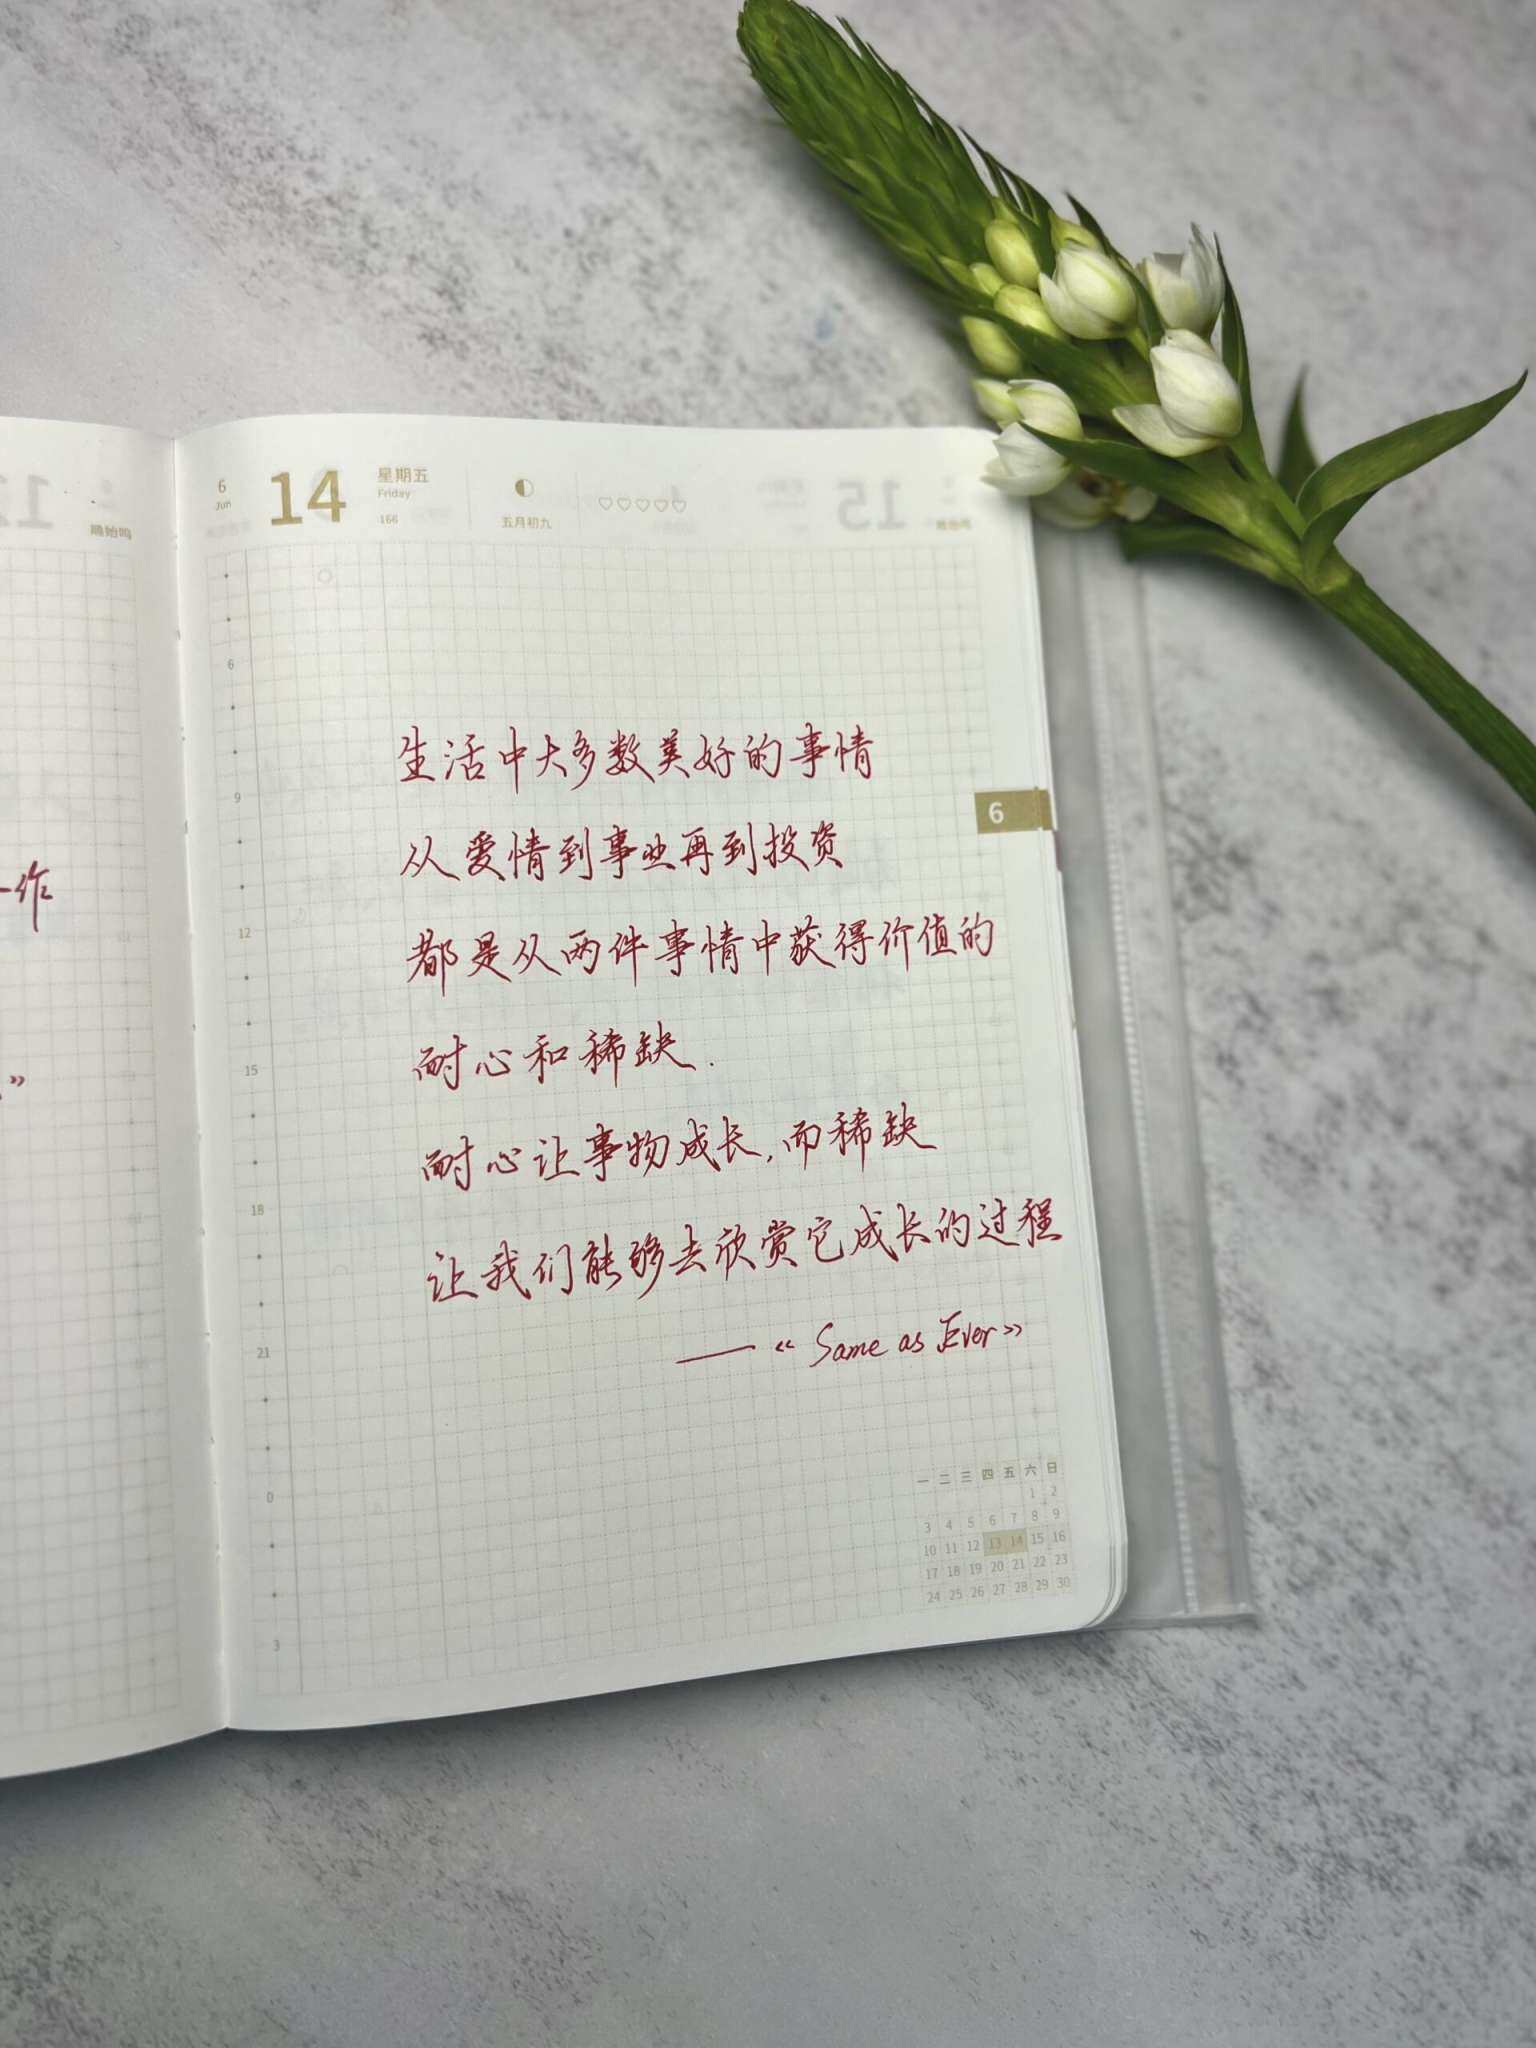 6
Jun
14
星期五
Friday
166
五月初九
6
9
12
15
18
21
0
3
6
作
”
生活中大多数美好的事情
从爱情到事业再到投资
都是从两件事情中获得价值的
耐心和稀缺.
耐心让事物成长,而稀缺
让我们能够去欣赏它成长的过程
——《Same as Ever》
一 二 三 四 五 六 日
1 2
3 4 5 6 7 8 9
10 11 12 13 14 15 16
17 18 19 20 21 22 23
24 25 26 27 28 29 30